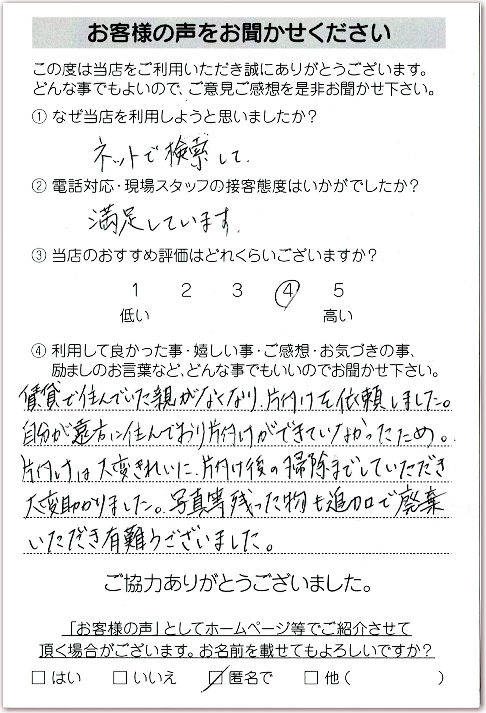 お客様の声をお聞かせください
この度は当店をご利用いただき誠にありがとうございます。
どんな事でもよいので、ご意見ご感想を是非お聞かせ下さい。
① なぜ当店を利用しようと思いましたか？
ネットで検索して.
② 電話対応・現場スタッフの接客態度はいかがでしたか？
満足しています.
③ 当店のおすすめ評価はどれくらいございますか？
1 2 3 ④ 5
低い 高い
④ 利用して良かった事・嬉しい事・ご感想・お気づきの事、
励ましのお言葉など、どんな事でもいいのでお聞かせ下さい。
賃貸で住んでいた親がなくなり、片付けを依頼しました。
自分が遠方に住んでおり片付けができていなかったため。
片付けは大変きれいに、片付け後の掃除までしていただき
大変助かりました。写真等残った物も追加で廃棄
いただき有難うございました。
ご協力ありがとうございました。
「お客様の声」としてホームページ等でご紹介させて
頂く場合がございます。お名前を載せてもよろしいですか？
□ はい □ いいえ ☑ 匿名で □ 他( )